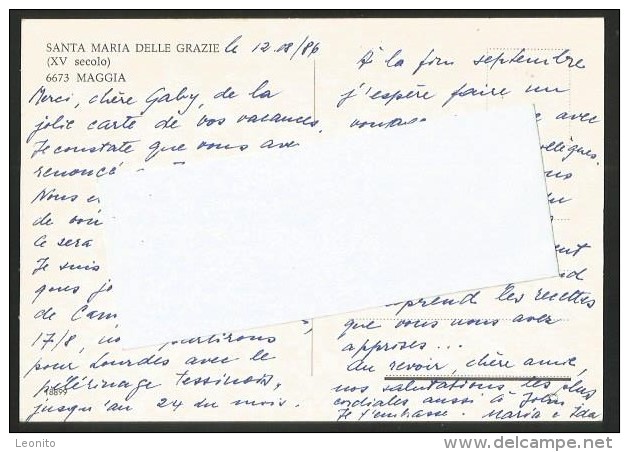 SANTA MARIA DELLE GRAZIE le 12.08/86
(XV secolo)
6673 MAGGIA
Merci, chère Gaby, de la
jolie carte de vos vacances.
Je constate que vous ave
renoncé
Nous e
de
ce sera
Je suis
ques jo
de Cam
17/8, partirons
pour Lourdes avec le
pélérinage Tessinois,
jusqu'au 24 du mois.
18899
À la fin septembre
j'espère faire un
avec
ollègues.
ous
ent
nd
prend les recettes
que vous nous avez
approses...
Au revoir, chère amie,
nos salutations les plus
cordiales aussi à John
Je t'embrasse. Maria e Ida
Leonito
www.delcampe.net